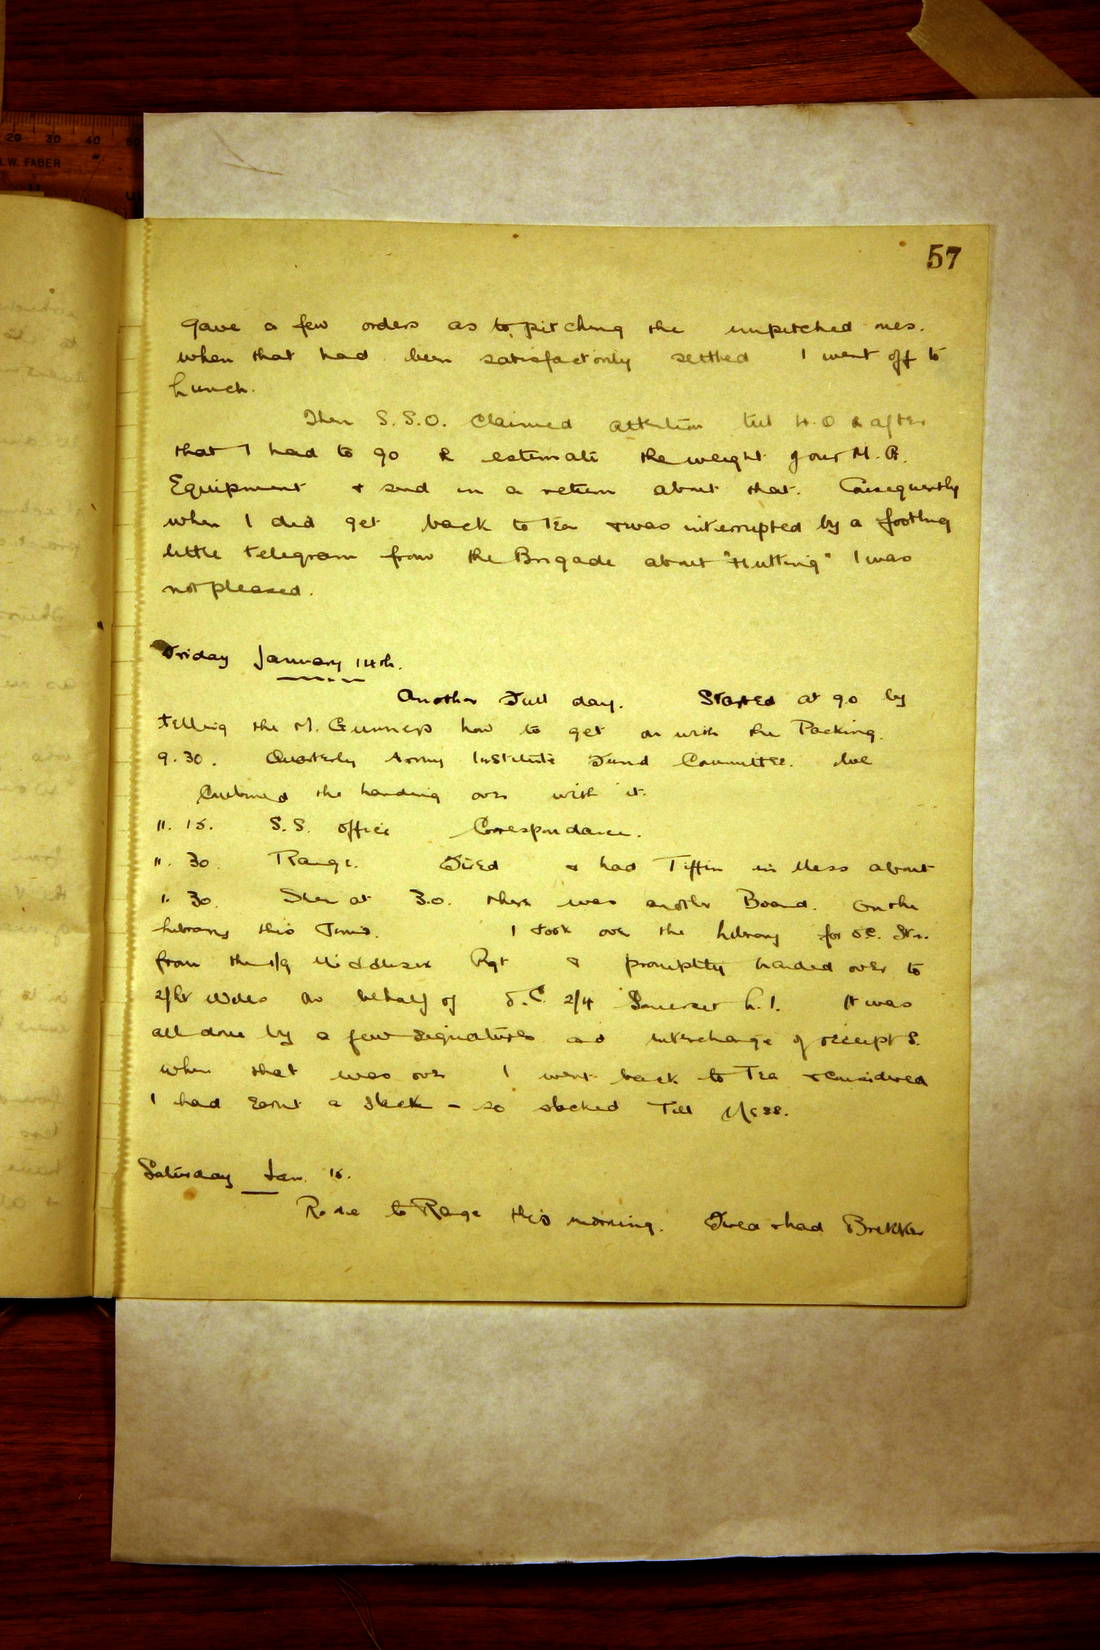 57
gave a few orders as to pitching the unpitched ones.
when that had been satisfactorily settled I went off to
Lunch.
Then S.S.O. claimed attention till 4.0 & after
that I had to go & estimate the weight of our M.G.
Equipment & send in a return about that. Consequently
when I did get back to Tea & was interrupted by a footling
little telegram from the Brigade about "Hutting" I was
not pleased.
Friday January 14th.
Another Full day. Started at 9.0 by
telling the M. Gunners how to get on with the Packing.
9.30. Quarterly Army Institute Fund Committee. We
the handing over with it.
11. 15. S.S. office Correspondance.
11. 30. Range. Fired & had Tiffin in Mess about
1. 30. Then at 3.0. there was another Board. On the
Library this Time. I took over the Library for O.C. Stn.
from the 1/9 Middlesex Rgt & promptly handed over to
2/Lt on behalf of O.C. 2/4 Somerset L.I. It was
all done by a few signatures and interchange of receipts.
when that was over I went back to Tea & considered
I had earnt a slack - so slacked Till Mess.
Saturday Jan. 15.
Rode to Range this morning. Fired & had Brekker
20 30 40
W. FABER